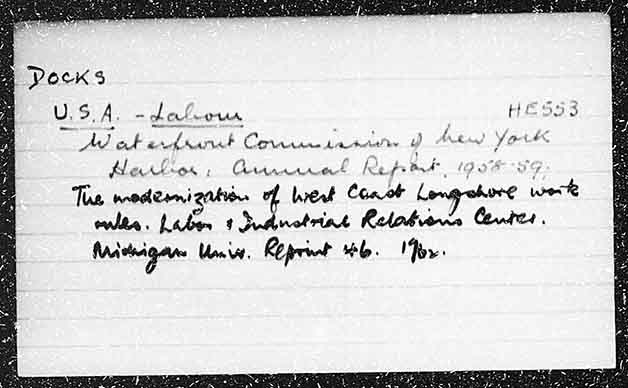 DOCKS
U.S.A. - Labour HE553
Waterfront Commission of New York
Harbor, Annual Report, 1958-59.
The modernization of West Coast Longshore work
rules. Labor & Industrial Relations Center.
Michigan Univ. Reprint 46. 1962.